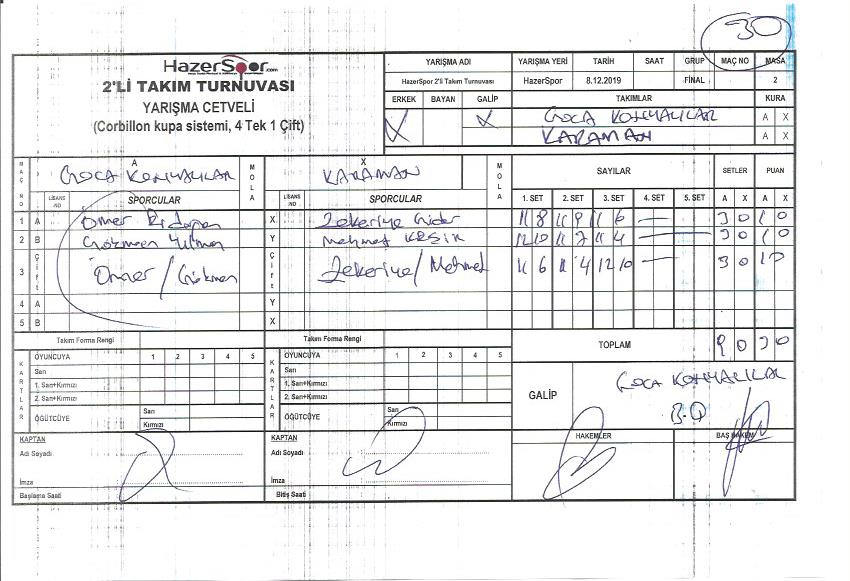 30
HazerSpor.com
2'Lİ TAKIM TURNUVASI
YARIŞMA CETVELİ
(Corbillon kupa sistemi, 4 Tek 1 Çift)
YARIŞMA ADI YARIŞMA YERİ TARİH SAAT GRUP MAÇ NO MASA
HazerSpor 2'li Takım Turnuvası HazerSpor 8.12.2019 FİNAL 2
ERKEK BAYAN GALİP TAKIMLAR KURA
X X GOCA KONYALILAR A X
KARAMAN A X
MAÇ NO A GOCA KONYALILAR MOLA X KARAMAN MOLA SAYILAR SETLER PUAN
LİSANS NO SPORCULAR LİSANS NO SPORCULAR 1. SET 2. SET 3. SET 4. SET 5. SET A X A X
1 A Ömer X Zekeriye 11 8 11 9 11 6 — 3 0 1 0
2 B Gökmen Yılman Y Mehmet KESİK 12 10 11 7 11 4 — 3 0 1 0
3 Çift Ömer / Gökmen Çift Zekeriye / Mehmet 11 6 11 4 12 10 — 3 0 1 0
4 A Y
5 B X
Takım Forma Rengi Takım Forma Rengi TOPLAM 9 0 3 0
KARTLAR OYUNCUYA 1 2 3 4 5 KARTLAR OYUNCUYA 1 2 3 4 5
Sarı Sarı
1. Sarı+Kırmızı 1. Sarı+Kırmızı
2. Sarı+Kırmızı 2. Sarı+Kırmızı
GALİP GOCA KONYALILAR
3-0
ÖĞÜTCÜYE Sarı ÖĞÜTCÜYE Sarı
Kırmızı Kırmızı
KAPTAN KAPTAN HAKEMLER BAŞ HAKEM
Adı Soyadı Adı Soyadı
İmza İmza
Başlama Saati Bitiş Saati